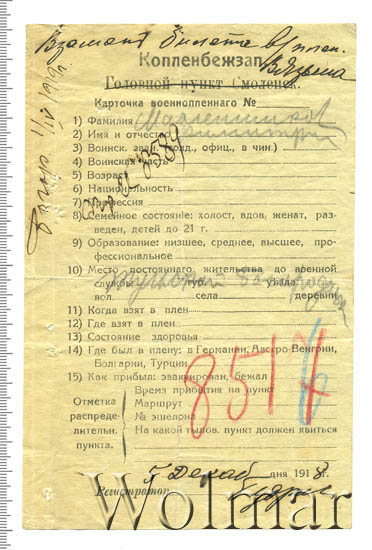 Взамен билета
Вязьма
Копленбежзап.
Головной пункт Смоленск.
Карточка военнопленного №
1) Фамилия
2) Имя и отчество Дмитрий
3) Воинск. зван. (солд., офиц., в чин)
4) Воинская часть
5) Возраст
6) Национальность
7) Профессия
8) Семейное состояніе: холост, вдов, женат, раз-
веден, детей до 21 г.
9) Образование: низшее, среднее, высшее, про-
фессиональное
10) Место постоянного жительства до военной
службы губ. уезда
вол. села деревни
11) Когда взят в плен
12) Где взят в плен
13) Состояние здоровья
14) Где был в плену: в Германии, Австро Венгрии,
Болгарии, Турции
15) Как прибыл: эвакуирован, бежал
Время прибытия на пункт
Отметка Маршрут
распреде- № эшелона
лительн. На какой тылов. пункт должен явиться
пункта.
8517
5 Декаб дня 1918 г.
Регистратор
Wolmar